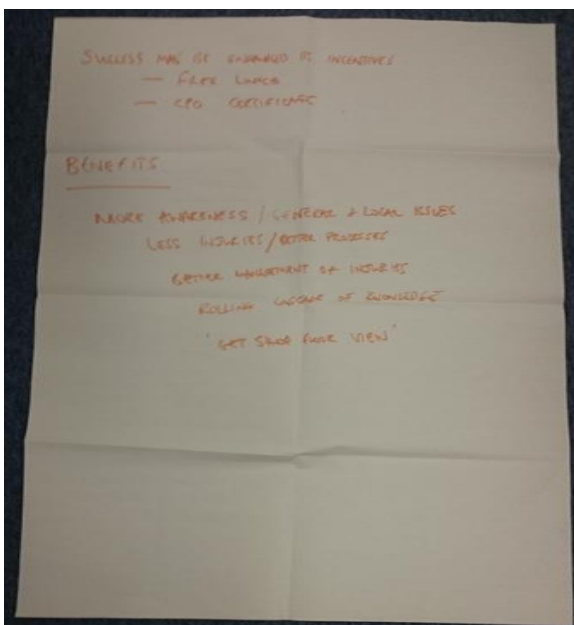 SUCCESS MAY BE ENHANCED BY INCENTIVES
— FREE LUNCH
— CPD CERTIFICATE
BENEFITS
MORE AWARENESS / GENERAL & LOCAL ISSUES
LESS INJURIES / BETTER PROCESSES
BETTER MANAGEMENT OF INJURIES
ROLLING OF KNOWLEDGE
'GET SHOP FLOOR VIEW'